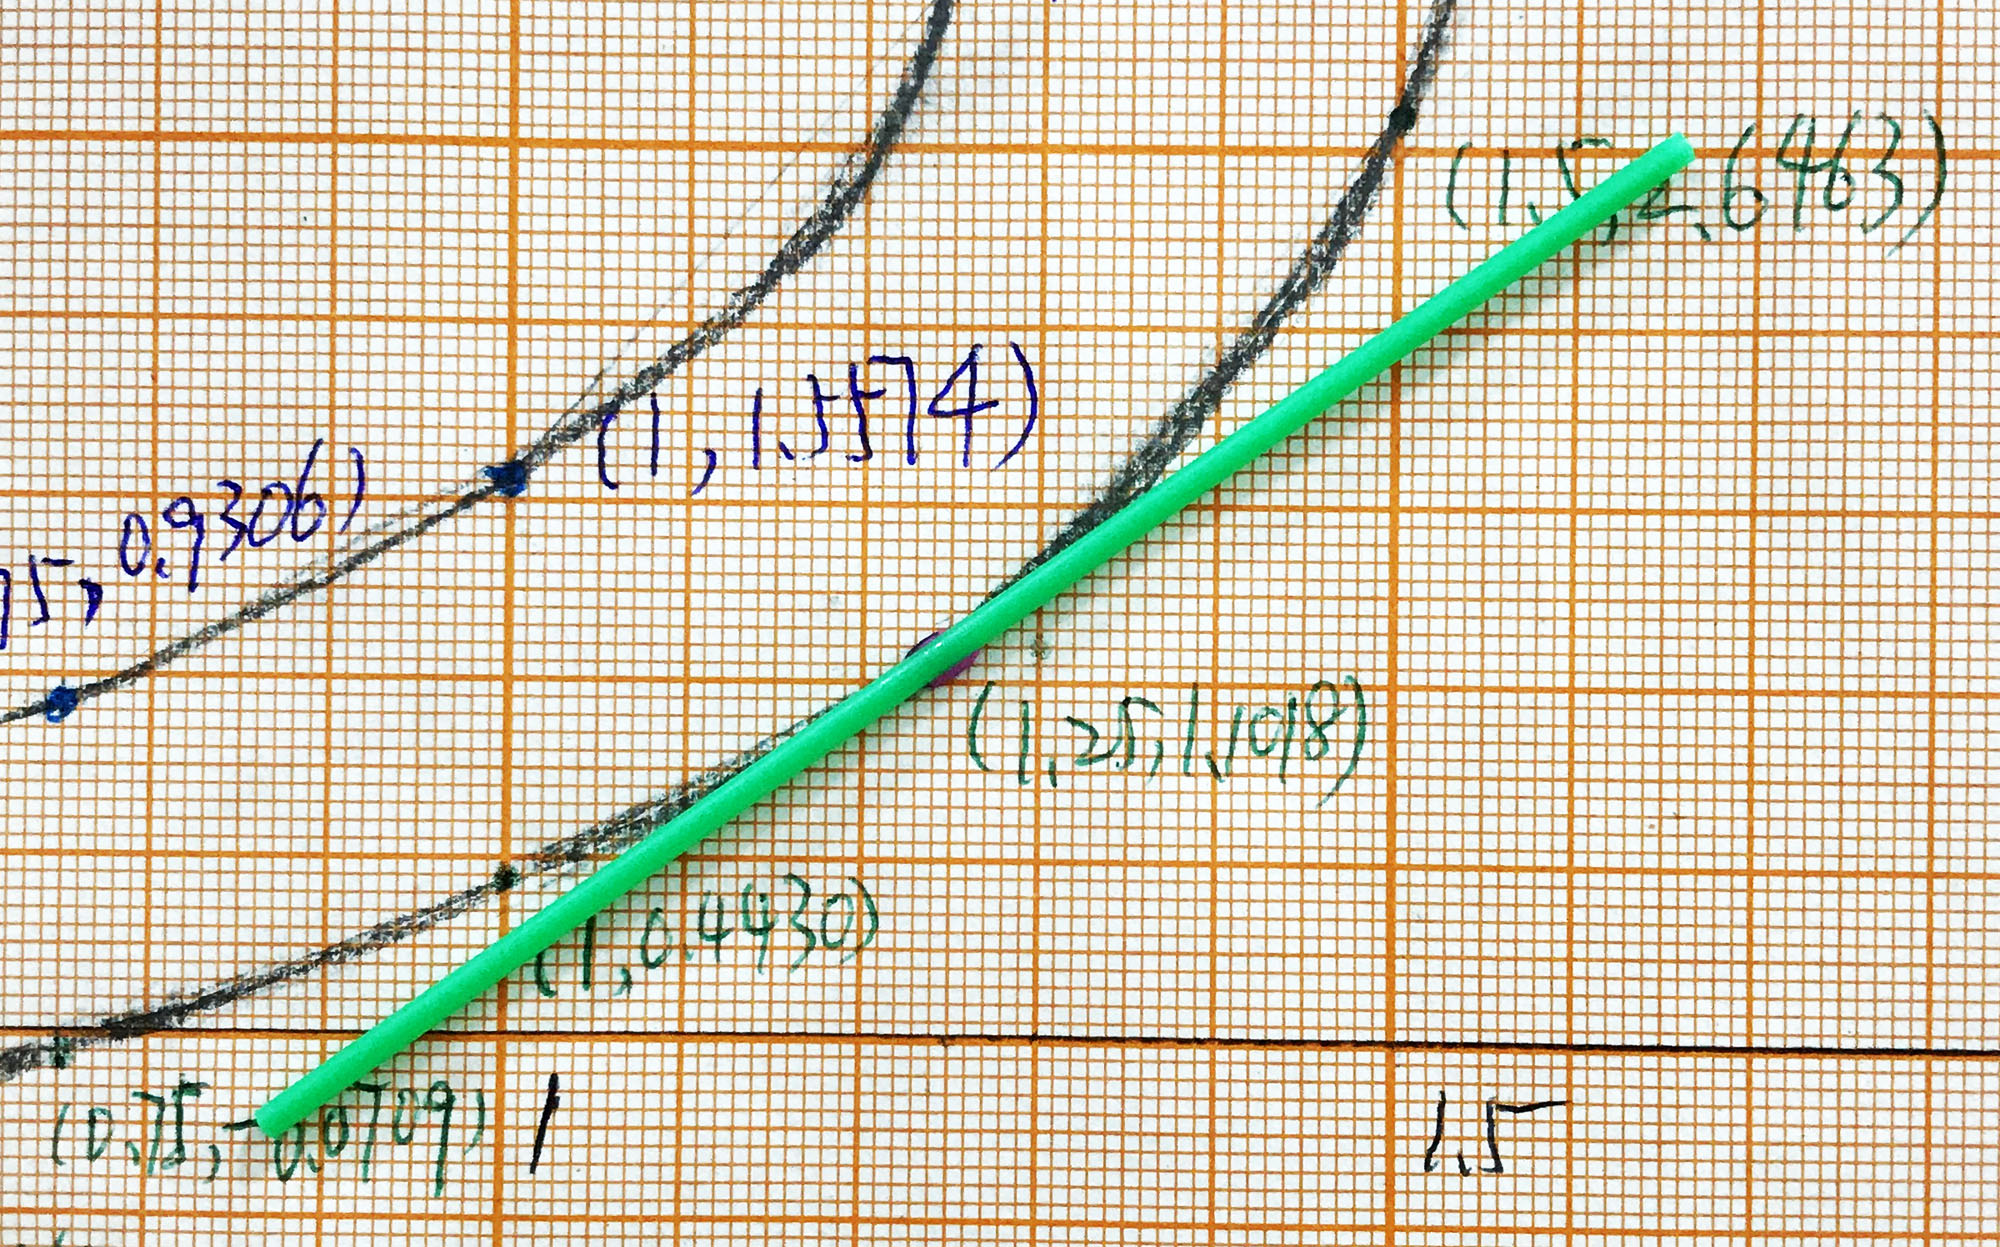 (1.5, 2.6463)
(1, 1.5574)
75, 0.9306)
(1.25, 1.1018)
(1, 0.4430)
(0.75, -0.0709)
1
1.5